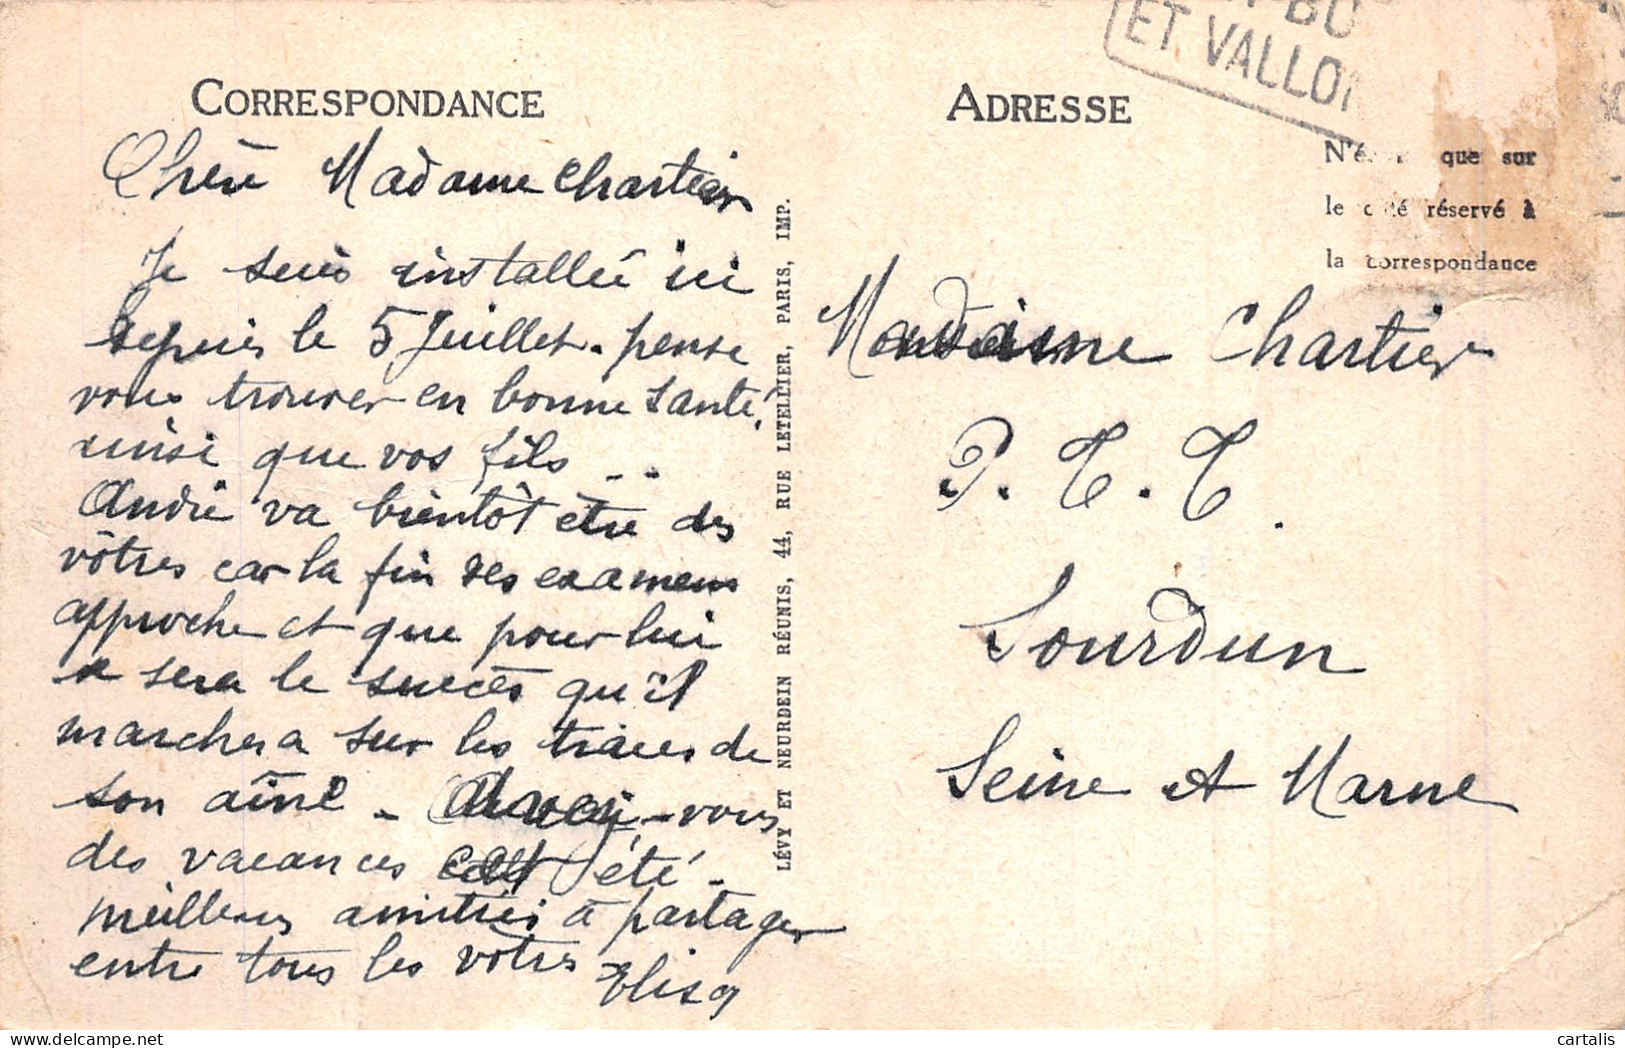 ET VALLON
CORRESPONDANCE
Chère Madame Chartier
Je suis installée ici
depuis le 5 Juillet. pense
vous trouver en bonne santé,
ainsi que vos fils ..
André va bientôt être des
vôtres car la fin des examens
approche et que pour lui
sera le succès qu'il
marchera sur les traces de
son aîné - Avez-vous
des vacances cet été -
meilleures amitiés à partager
entre tous les vôtres
Elisa
LÉVY ET NEURDEIN RÉUNIS, 44, RUE LETELLIER, PARIS, IMP.
ADRESSE
que sur
le côté réservé à
la correspondance
Madame Chartier
P. T. T.
Sourdun
Seine et Marne
cartalis